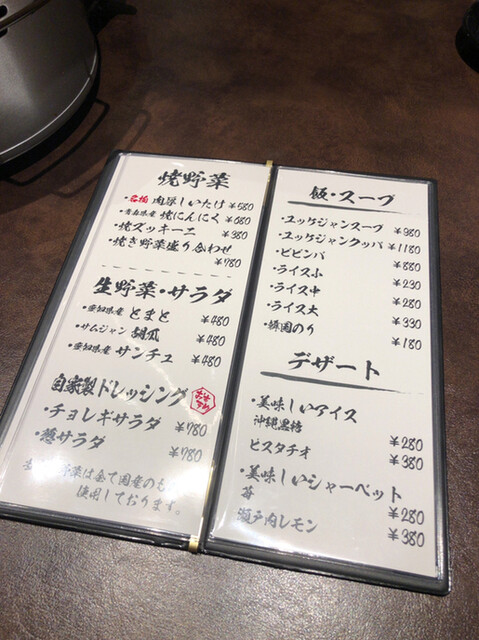 焼野菜
・名物 肉厚しいたけ ¥580
・青森県産 焼にんにく ¥680
・焼ズッキーニ ¥380
・焼き野菜盛り合わせ ¥780
生野菜・サラダ
・愛知県産 とまと ¥480
・サムジャン 胡瓜 ¥480
・愛知県産 サンチュ ¥480
自家製ドレッシング
おすすめ
・チョレギサラダ ¥780
・葱サラダ ¥780
野菜は全て国産のもの
使用しております。
飯・スープ
・ユッケジャンスープ ¥980
・ユッケジャンクッパ ¥1180
・ビビンバ ¥880
・ライス小 ¥230
・ライス中 ¥280
・ライス大 ¥330
・韓国のり ¥180
デザート
・美味しいアイス
沖縄黒糖 ¥280
ピスタチオ ¥380
・美味しいシャーベット
苺 ¥280
瀬戸内レモン ¥380